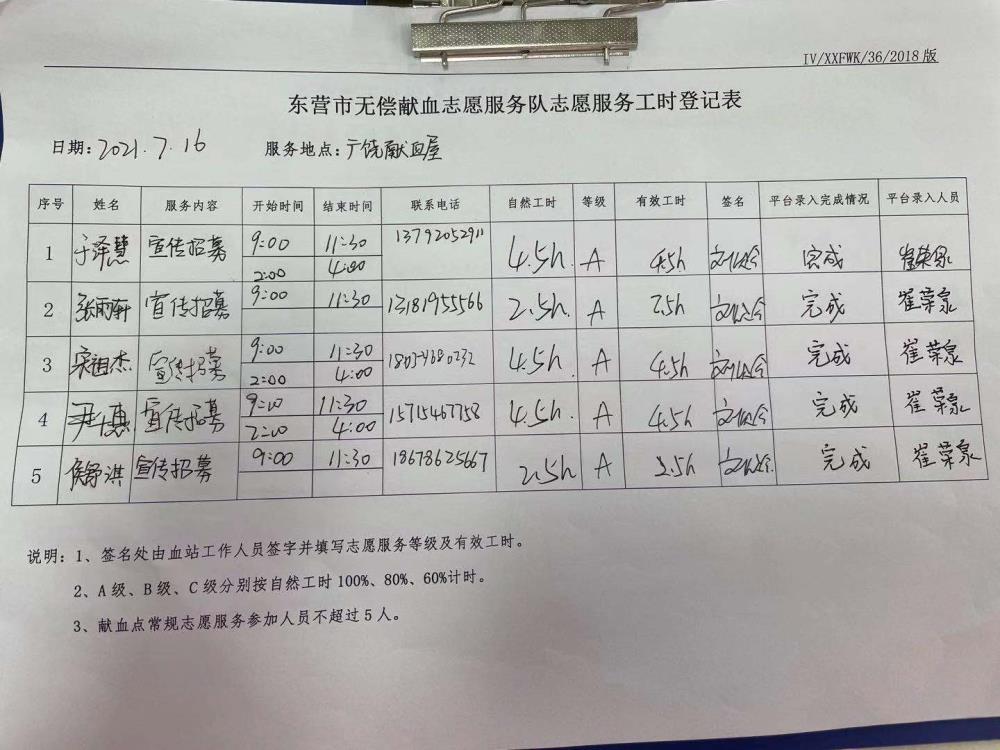 IV/XXFWK/36/2018版
东营市无偿献血志愿服务队志愿服务工时登记表
日期:2021.7.16 服务地点:广饶献血屋
序号 姓名 服务内容 开始时间 结束时间 联系电话 自然工时 等级 有效工时 签名 平台录入完成情况 平台录入人员
1 于泽慧 宣传招募 9:00 11:30 13792052911 4.5h. A 4.5h 完成 崔荣泉
2:00 4:00
2 张雨轩 宣传招募 9:00 11:30 13181955566 2.5h. A 2.5h 完成 崔荣泉
3 宋祖杰 宣传招募 9:00 11:30 4.5h. A 4.5h 完成 崔荣泉
2:00 4:00
4 宣传招募 9:00 11:30 15715467758 4.5h. A 4.5h 完成 崔荣泉
2:00 4:00
5 侯舒淇 宣传招募 9:00 11:30 18678625667 2.5h A 2.5h 完成 崔荣泉
说明:1、签名处由血站工作人员签字并填写志愿服务等级及有效工时。
2、A级、B级、C级分别按自然工时100%、80%、60%计时。
3、献血点常规志愿服务参加人员不超过5人。